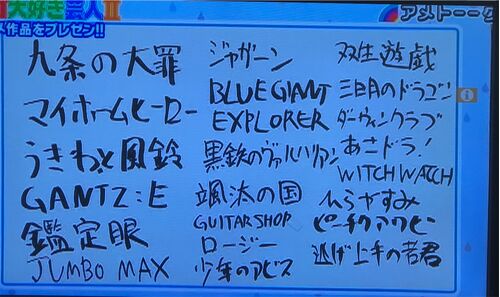 大好き芸人II
作品をプレゼン!!
アメトーーク
九条の大罪
マイホームヒーロー
うきわと風鈴
GANTZ:E
鑑定眼
JUMBO MAX
ジャガーン
BLUE GIANT
EXPLORER
黒鉄のヴァルハリアン
颯汰の国
GUITAR SHOP
ロージー
少年のアビス
双生遊戯
三日月のドラゴン
ダーウィンクラブ
あさドラ!
WITCH WATCH
ひらやすみ
ピーチクアワビ
逃げ上手の若君